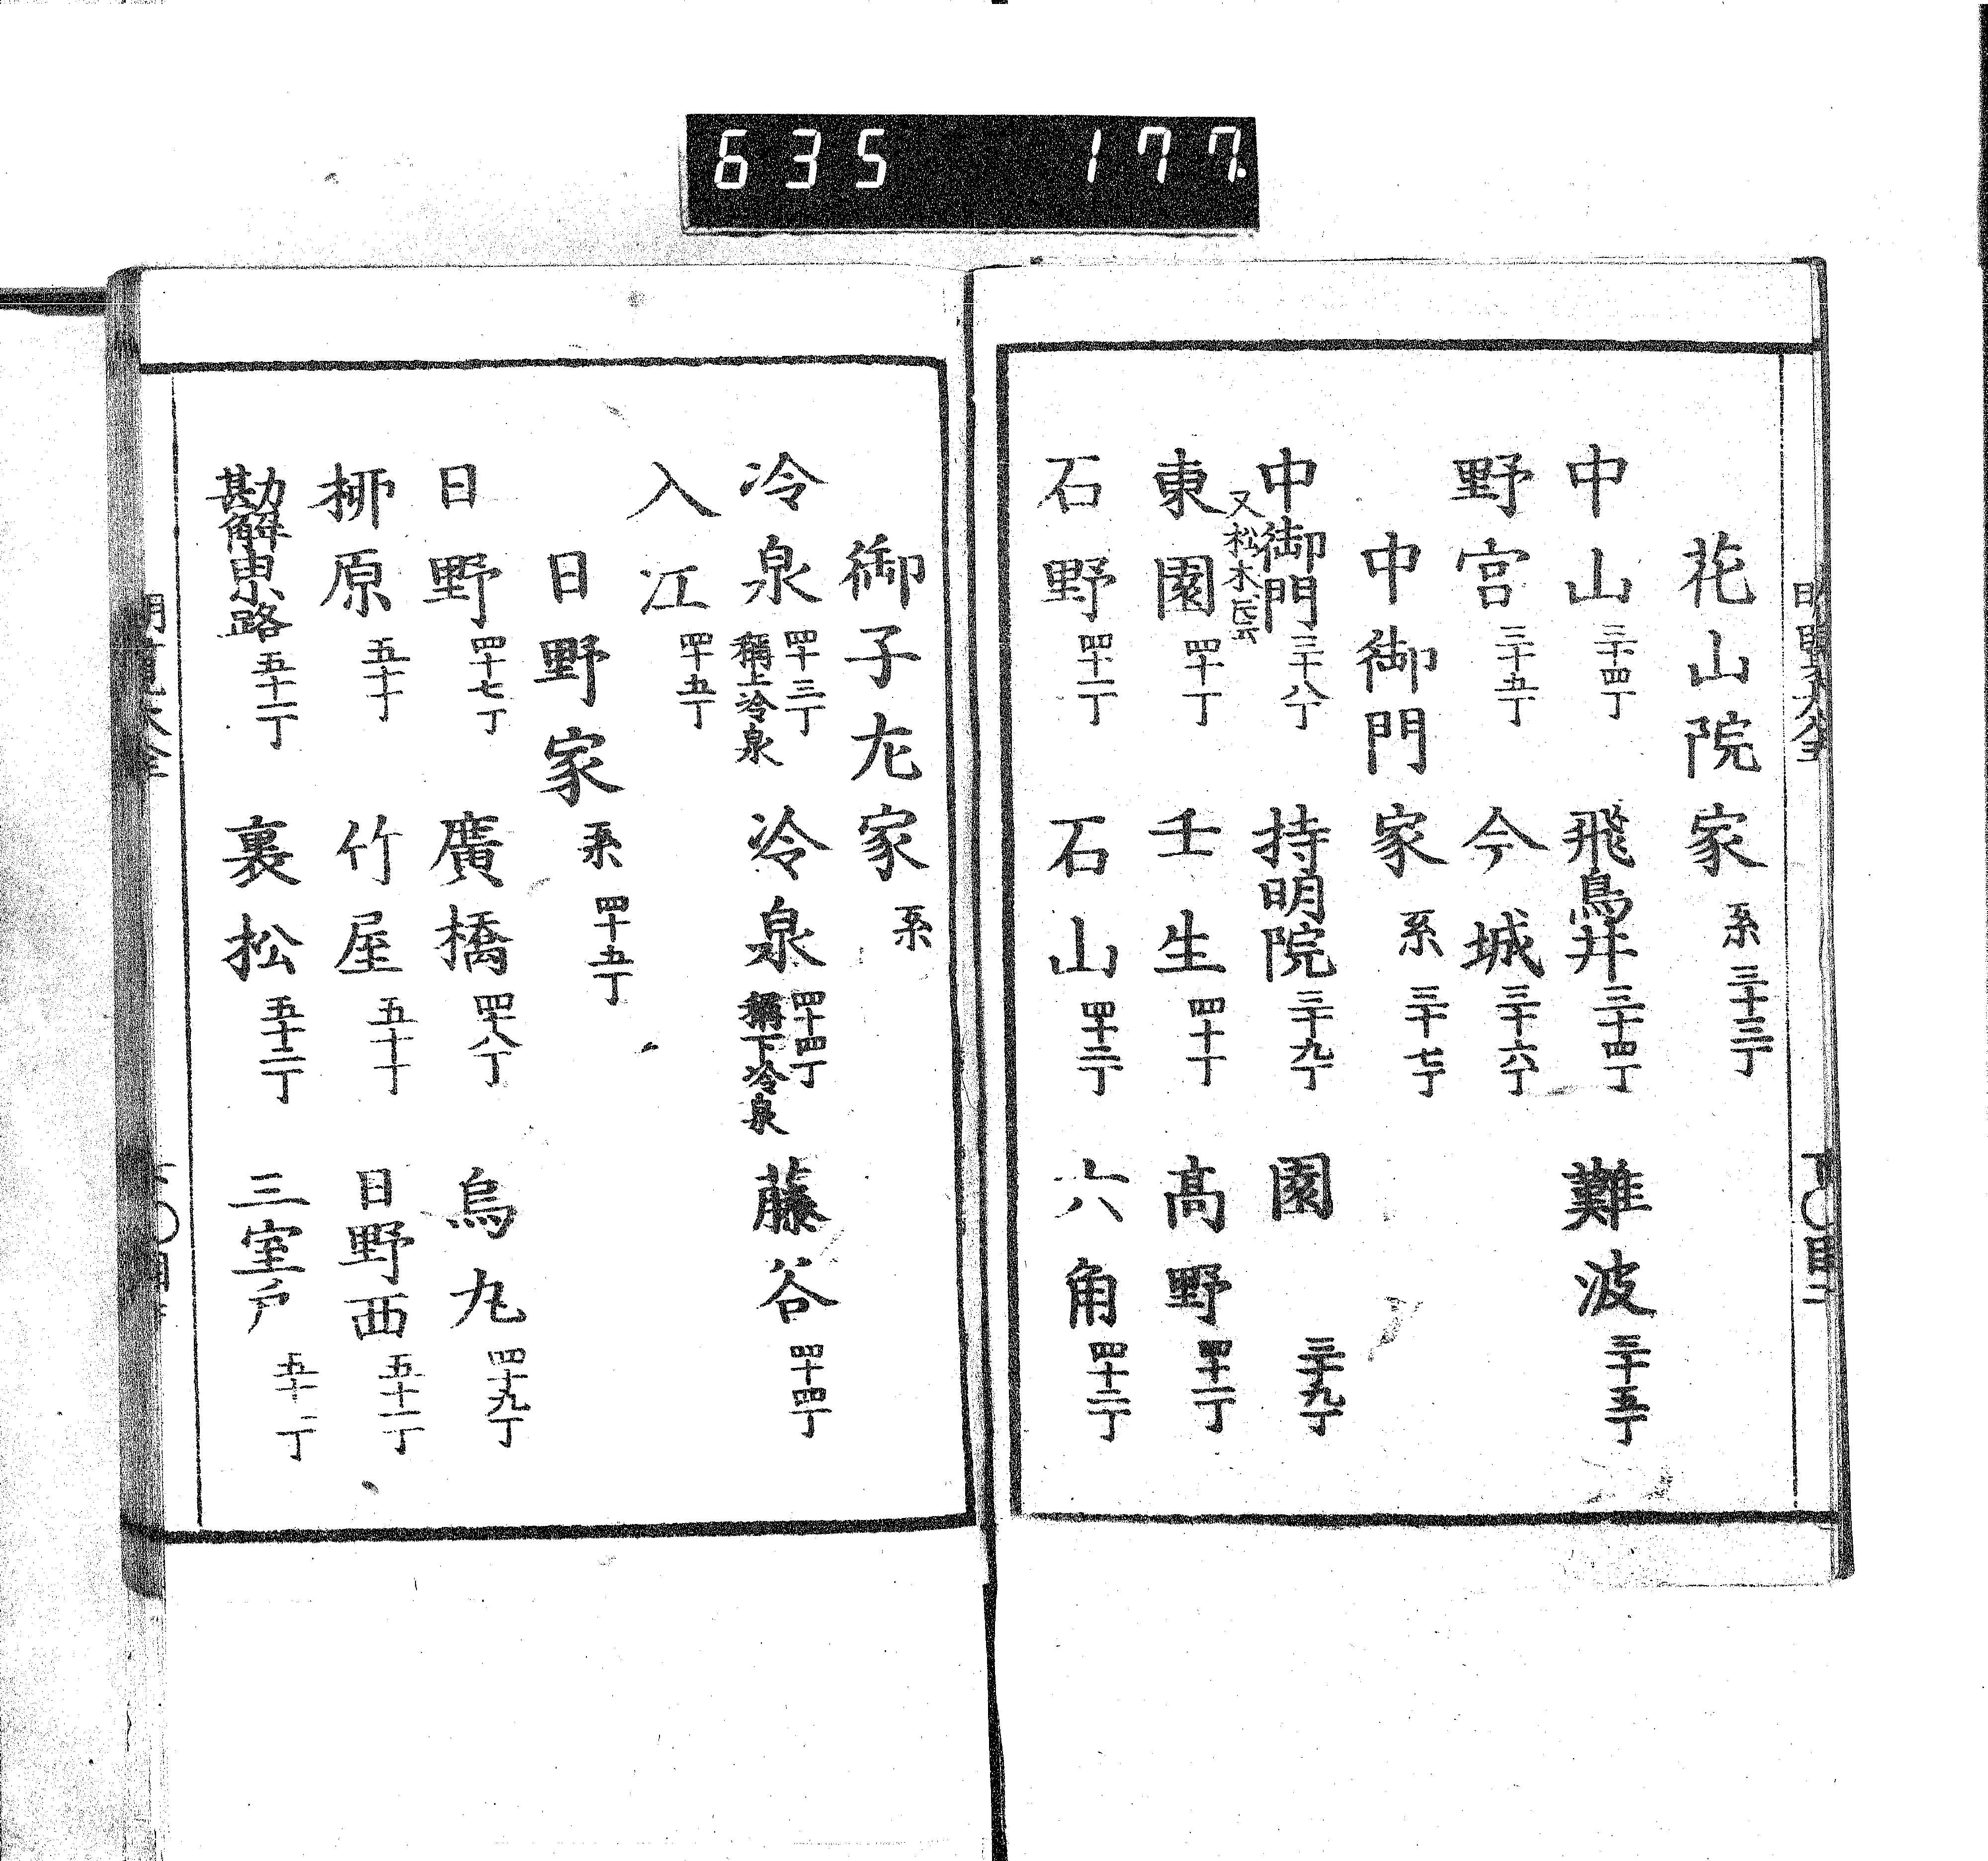 635 177.
花山院家 系 三十三丁
中山 三十四丁 飛鳥井 三十四丁 難波 三十五丁
野宮 三十五丁 今城 三十六丁
中御門家 系 三十七丁
中御門 三十八丁 持明院 三十九丁 園 三十九丁
又松木氏云
東園 四十丁 壬生 四十丁 高野 四十一丁
石野 四十二丁 石山 四十二丁 六角 四十二丁
御子左家 系
冷泉 四十三丁 稱上冷泉 冷泉 四十四丁 稱下冷泉 藤谷 四十四丁
入江 四十五丁
日野家 系 四十五丁
日野 四十七丁 廣橋 四十八丁 烏丸 四十九丁
栁原 五十丁 竹屋 五十丁 日野西 五十一丁
勘解由路 五十一丁 裏松 五十二丁 三室戸